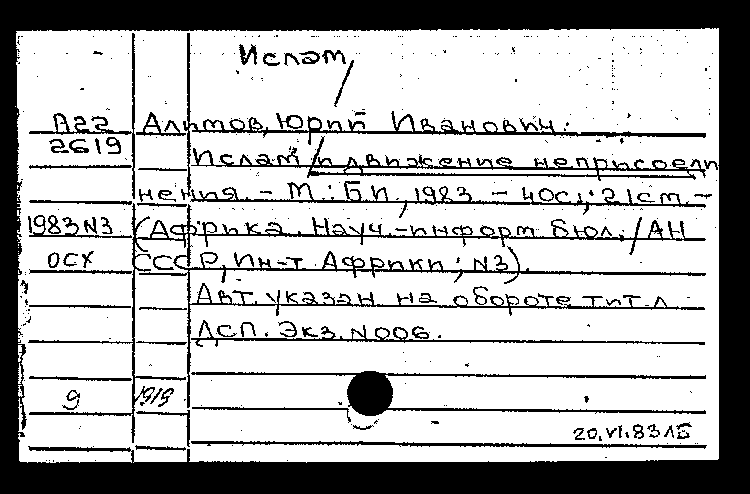 Ислам
А22 Алимов, Юрий Иванович.
2619 Ислам и движение неприсоеди
нения. - М.: Б.И., 1983 - 40с.; 21см. -
1983 N3 (Африка. Науч.-информ. бюл. / АН
ОСХ СССР, Ин-т Африки; N3).
Авт. указан на обороте тит. л
ДСП. Экз. N006.
9 1919
20.VI.83 ЛБ